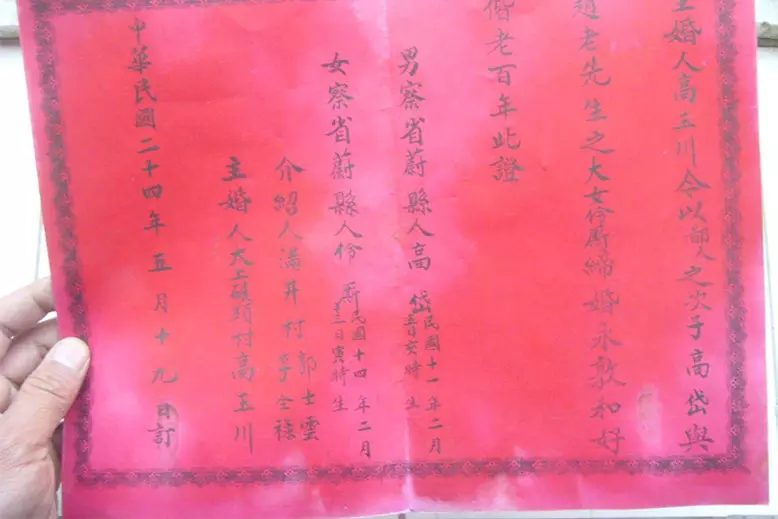 主婚人高玉川今以鄙人之次子高岱與
趙老先生之大女伶 締婚永敦和好
偕老百年此證
男察省蔚縣人高岱民國十一年二月
日亥時生
女察省蔚縣人伶 民國十四年二月
日寅時生
介紹人滿井村郭士雲
全祿
主婚人大上碾頭村高玉川
中華民國二十四年五月十九日訂